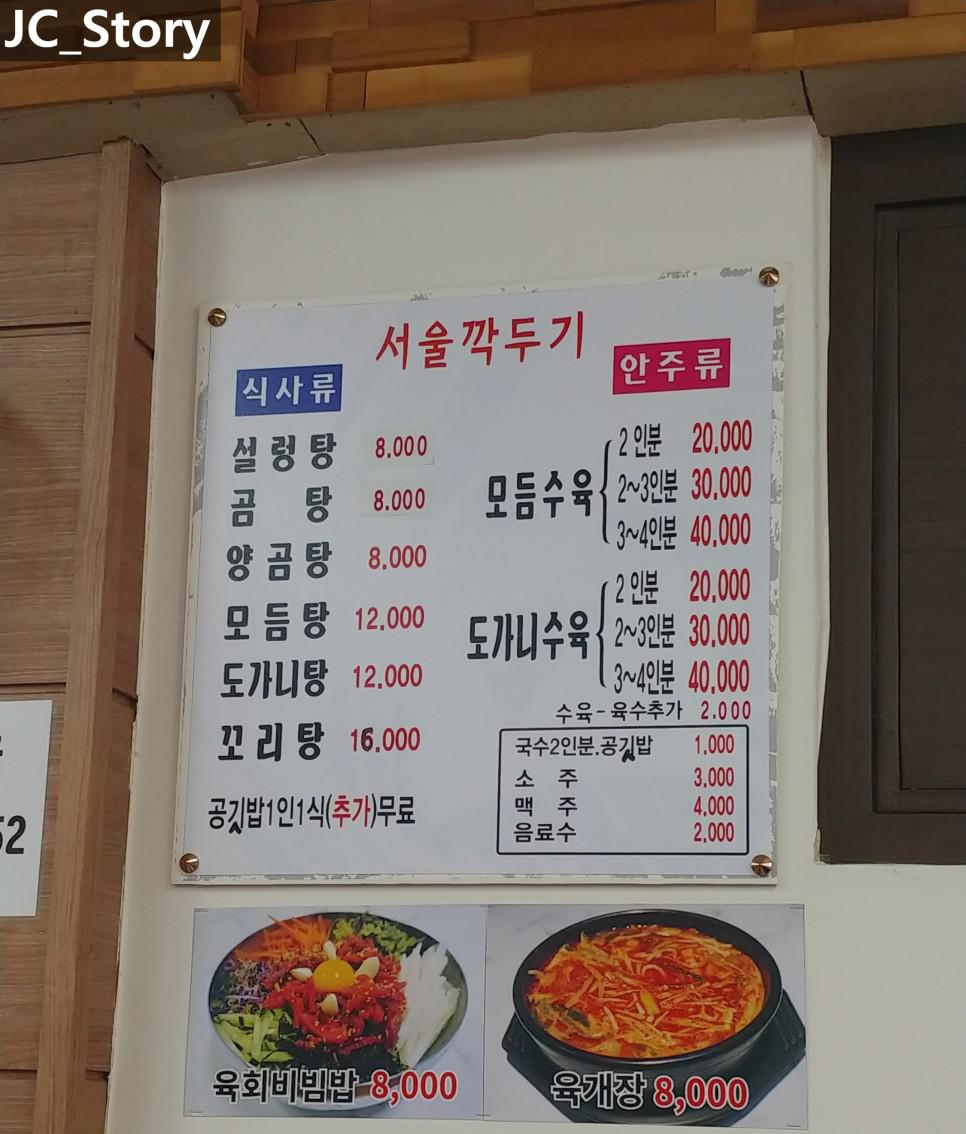 JC_Story
서울깍두기
식사류
설렁탕 8.000
곰 탕 8.000
양곰탕 8.000
모듬탕 12.000
도가니탕 12.000
꼬리탕 16.000
공깃밥1인1식(추가)무료
안주류
모듬수육
2인분 20,000
2~3인분 30,000
3~4인분 40,000
도가니수육
2인분 20,000
2~3인분 30,000
3~4인분 40,000
수육-육수추가 2.000
국수2인분.공깃밥 1,000
소 주 3,000
맥 주 4,000
음료수 2,000
52
육회비빔밥 8,000
육개장 8,000